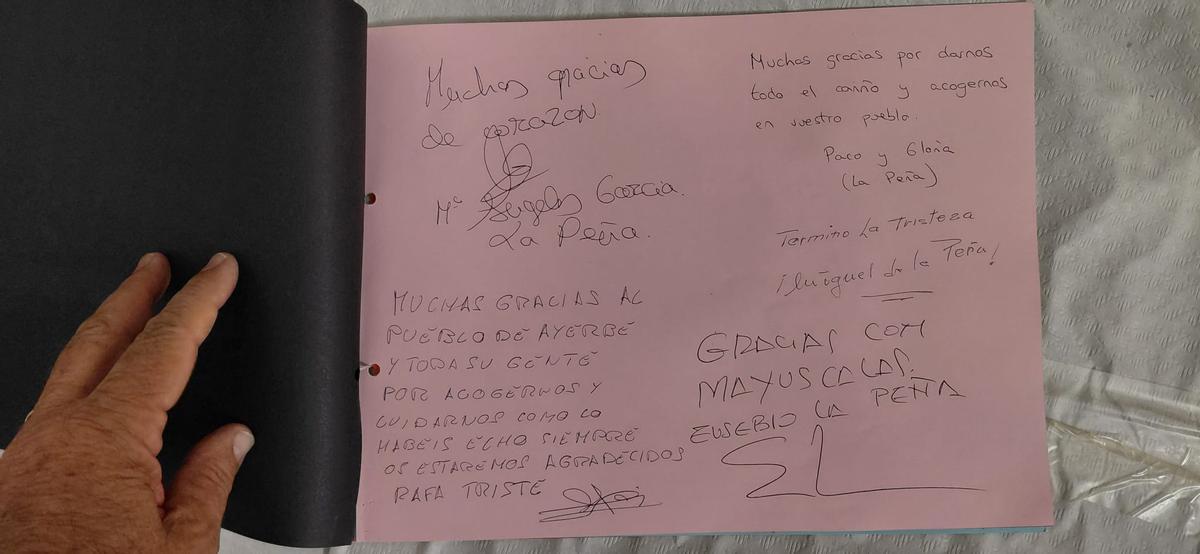 Muchas gracias
de corazon
Mª Angeles Garcia
La Peña.
MUCHAS GRACIAS AL
PUEBLO DE AYERBE
Y TODA SU GENTE
POR ACOGERNOS Y
CUIDARNOS COMO LO
HABEIS ECHO SIEMPRE
OS ESTAREMOS AGRADECIDOS
RAFA TRISTE
Muchas gracias por darnos
todo el cariño y acogernos
en vuestro pueblo.
Paco y Gloria
(La Peña)
Termino La Tristeza
de la Peña!
GRACIAS COM
MAYUSCALAS.
EUSEBIO LA PEÑA